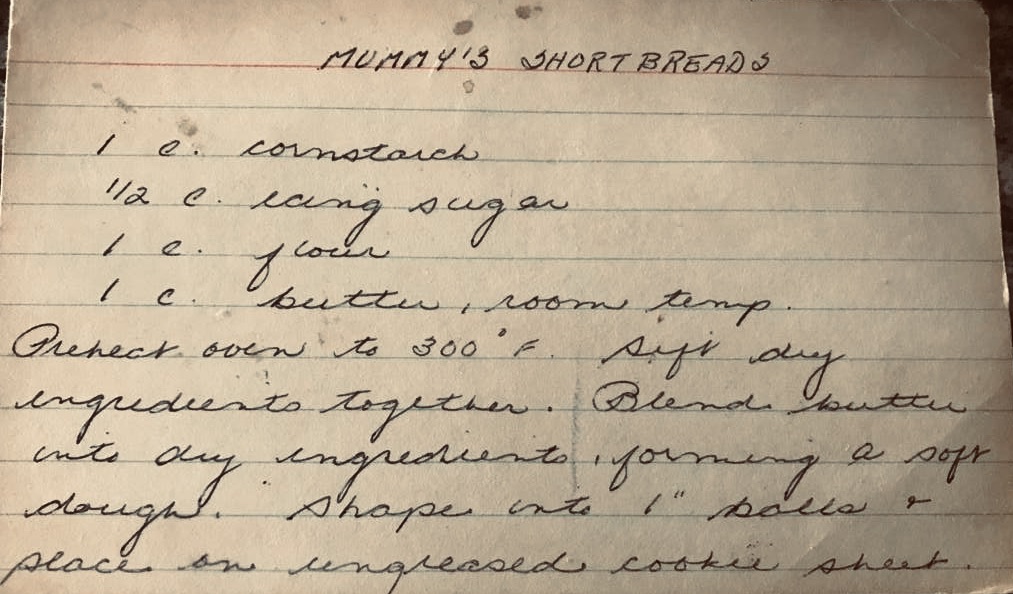 MUMMY'S SHORTBREADS
1 c. cornstarch
1/2 c. icing sugar
1 c. flour
1 c. butter, room temp.
Preheat oven to 300° F. Sift dry
ingredients together. Blend butter
into dry ingredients, forming a soft
dough. Shape into 1" balls &
place on ungreased cookie sheet.